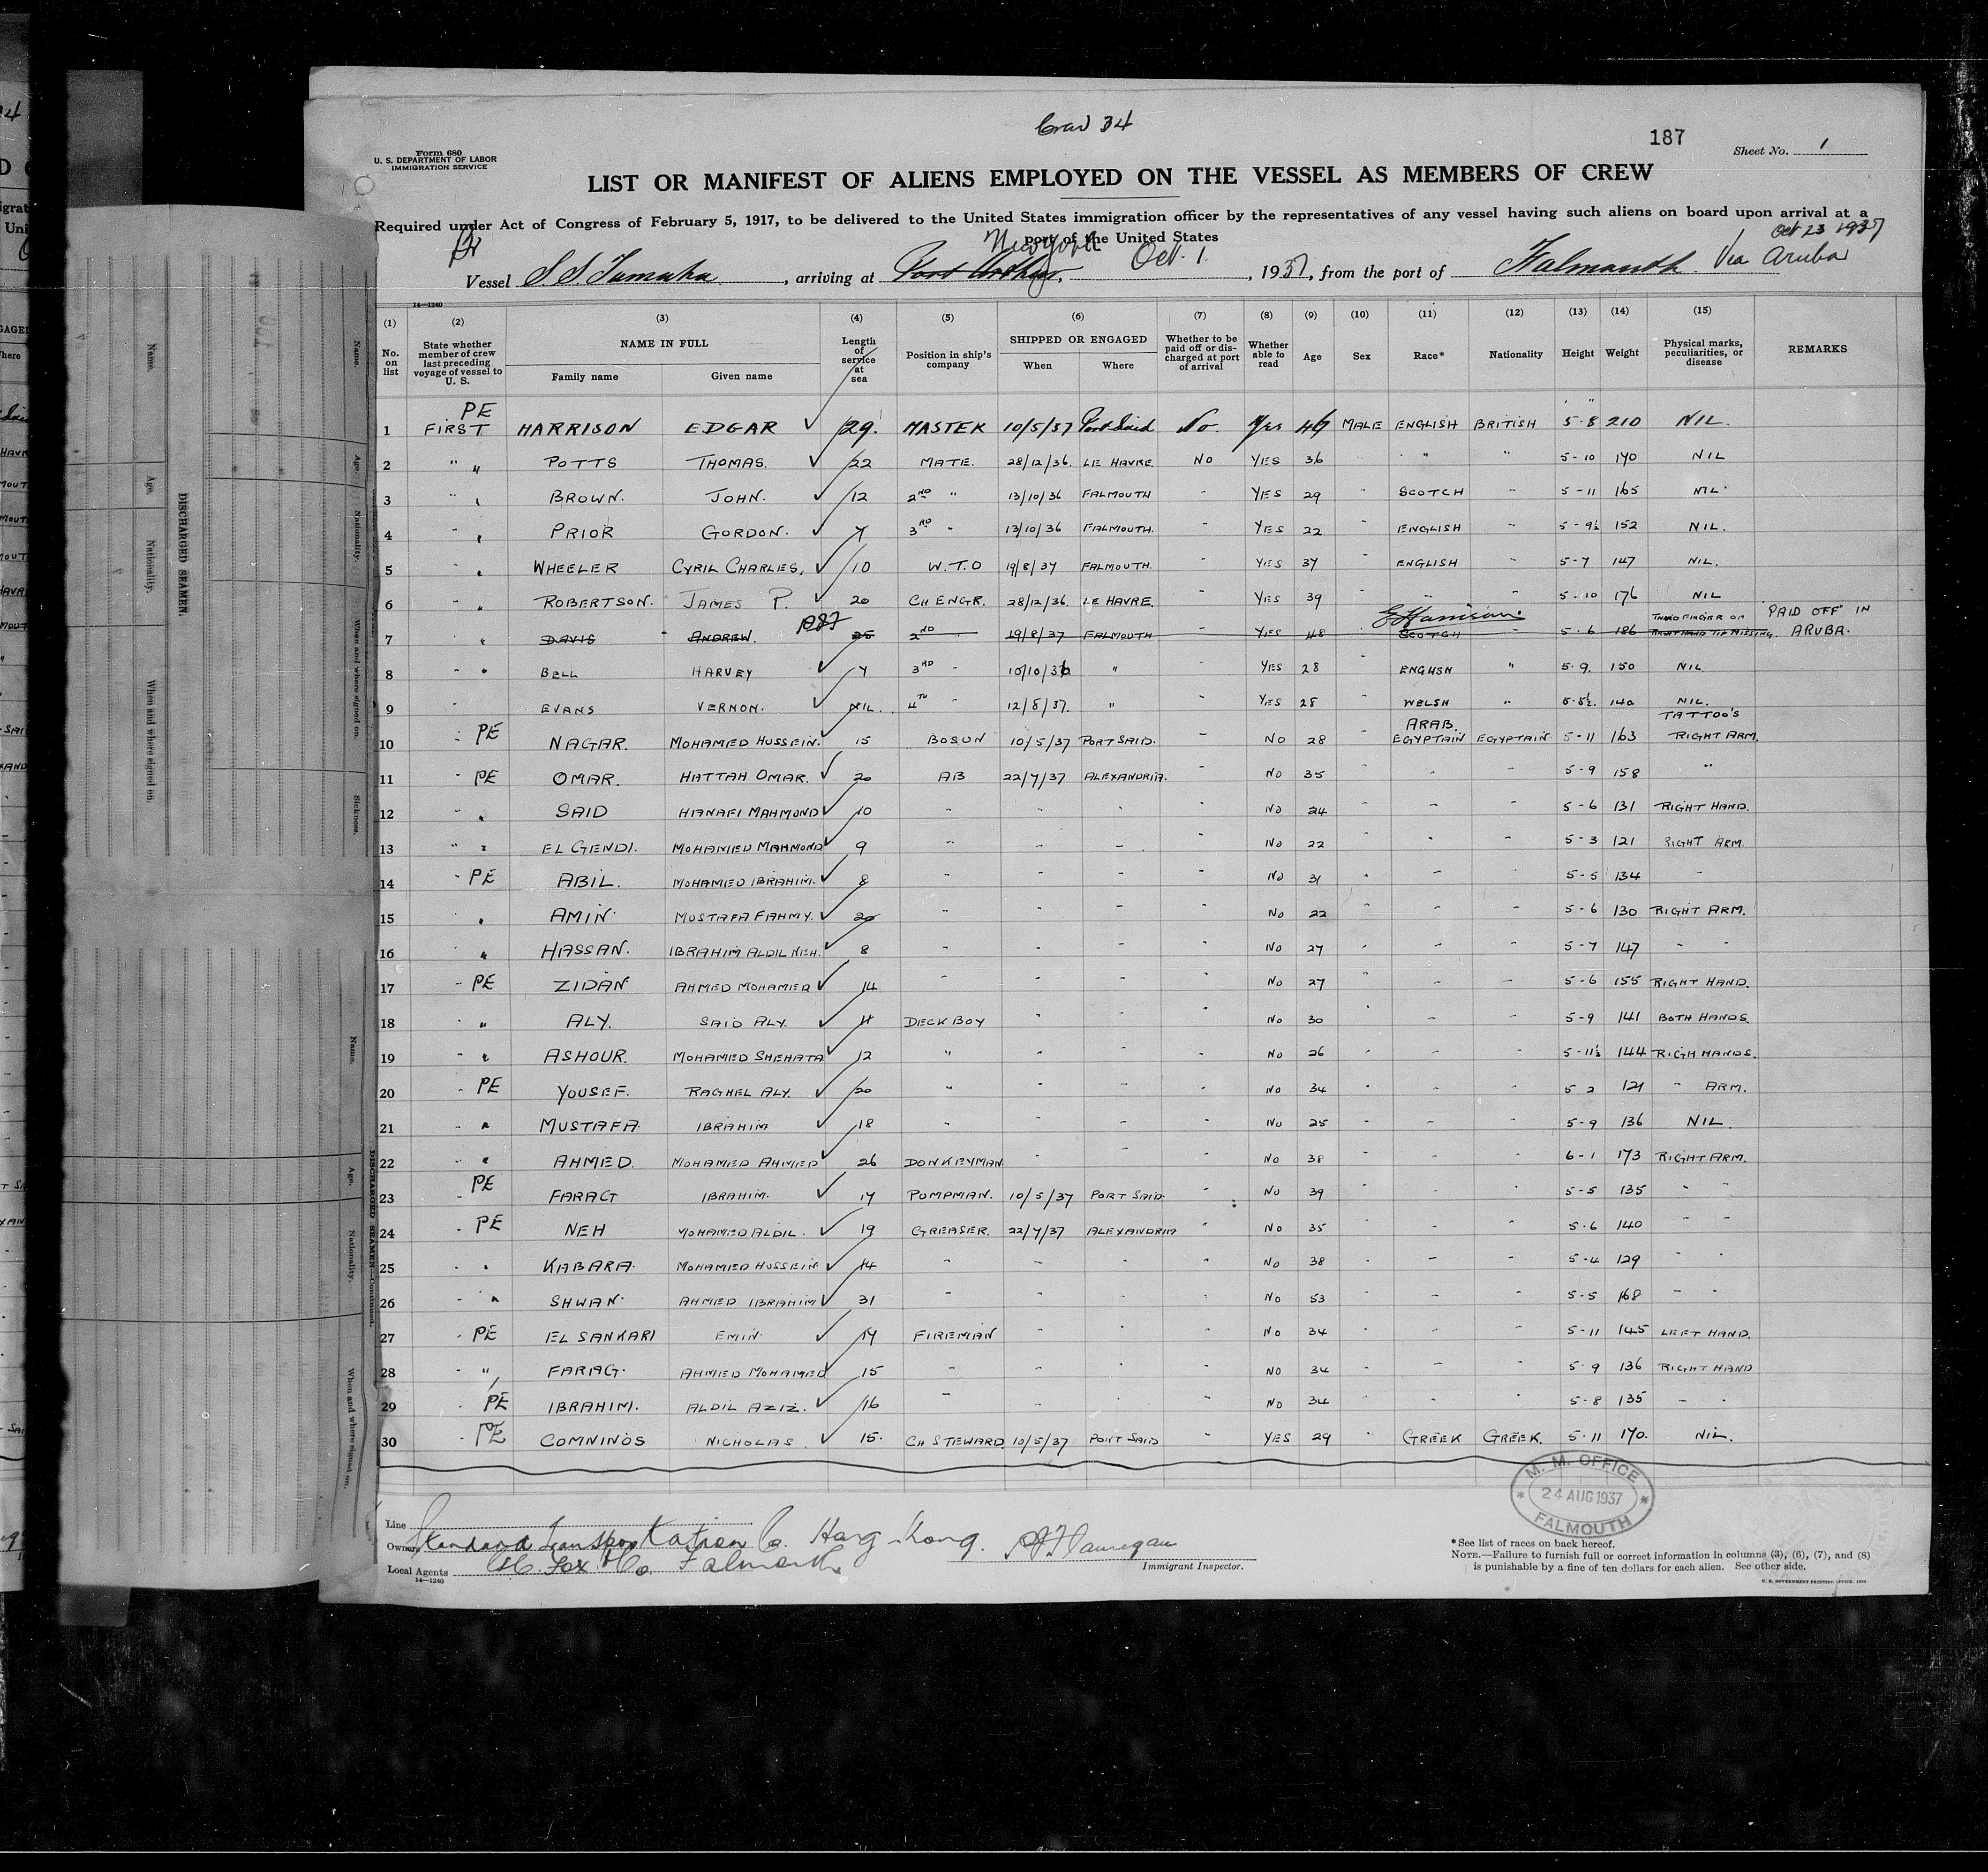 Crew 34
187
Form 680
U. S. DEPARTMENT OF LABOR
IMMIGRATION SERVICE
Sheet No. 1
LIST OR MANIFEST OF ALIENS EMPLOYED ON THE VESSEL AS MEMBERS OF CREW
Required under Act of Congress of February 5, 1917, to be delivered to the United States immigration officer by the representatives of any vessel having such aliens on board upon arrival at a
port of the United States
Oct 23 1937
Br
New York
Vessel S.S. Tamaha, arriving at Port Arthur, Oct. 1, 1937, from the port of Falmouth Via Aruba
14—1240
(1) (2) (3) (4) (5) (6) (7) (8) (9) (10) (11) (12) (13) (14) (15)
No. on list
State whether member of crew last preceding voyage of vessel to U. S.
NAME IN FULL
Family name Given name
Length of service at sea
Position in ship's company
SHIPPED OR ENGAGED
When Where
Whether to be paid off or discharged at port of arrival
Whether able to read
Age Sex Race* Nationality Height Weight
Physical marks, peculiarities, or disease
REMARKS
1 PE FIRST HARRISON EDGAR 29 MASTER 10/5/37 Port Said No. Yes 46 MALE ENGLISH BRITISH 5-8 210 NIL.
2 " " POTTS THOMAS. 22 MATE. 28/12/36. LE HAVRE. NO YES 36 " " 5-10 170 NIL
3 " " BROWN. JOHN. 12 2ND " 13/10/36 FALMOUTH - YES 29 SCOTCH " 5-11 165 NIL
4 " " PRIOR GORDON. 7 3RD " 13/10/36 FALMOUTH. - YES 22 ENGLISH " 5-9½ 152 NIL.
5 " " WHEELER CYRIL CHARLES. 10 W.T.O 19/8/37 FALMOUTH. - YES 37 ENGLISH " 5-7 147 NIL.
6 " " ROBERTSON. JAMES P. 20 CH ENGR. 28/12/36. LE HAVRE. - YES 39 " " 5-10 176 NIL
E Harrison
7 " DAVIS ANDREW. 25 2ND 19/8/37 FALMOUTH YES 48 SCOTCH 5-6 186 THIRD FINGER OF RIGHT HAND TIP MISSING. PAID OFF IN ARUBA.
8 " " BELL HARVEY 7 3RD " 10/10/36 " - YES 28 ENGLISH " 5-9. 150 NIL
9 " EVANS VERNON. NIL. 4TH " 12/8/37. " - YES 25 WELSH " 5-8½. 140 NIL.
10 " PE NAGAR. MOHAMED HUSSEIN. 15 BOSUN 10/5/37 PORT SAID. - NO 28 ARAB. EGYPTAIN EGYPTAIN 5-11 163 TATTOO'S RIGHT ARM.
11 " PE OMAR. HATTAH OMAR. 20 AB 22/7/37 ALEXANDRIA. - NO 35 " " 5-9 158 "
12 " " SAID HIANAFI MAHMOND 10 " " " NO 24 " " 5-6 131 RIGHT HAND.
13 " " EL GENDI. MOHAMED MAHMOND 9 " " " NO 22 " " 5-3 121 RIGHT ARM.
14 " PE ABIL. MOHAMED IBRAHIM. 8 " " " NO 31 " " 5-5 134 "
15 " AMIN MUSTAFA FAHMY. 20 " " " NO 22 " " 5-6 130 RIGHT ARM.
16 " HASSAN. IBRAHIM ALDIL NEH. 8 " " " NO 27 " " 5-7 147 " "
17 " PE ZIDAN AHMED MOHAMED 14 " " " NO 27 " " 5-6 155 RIGHT HAND.
18 " " ALY. SAID ALY. 11 DECK BOY " " NO 30 " " 5-9 141 BOTH HANDS.
19 " " ASHOUR. MOHAMED SHEHATA 12 " " " NO 26 " " 5-11½ 144 RIGH HANDS.
20 " PE YOUSEF. RAGHEL ALY. 20 " " " NO 34 " " 5 2 121 " ARM.
21 " " MUSTAFA IBRAHIM 18 " " " NO 25 " " 5-9 136 NIL.
22 " " AHMED. MOHAMED AHMED 26 DONKEYMAN. " " NO 38 " " 6-1 173 RIGHT ARM.
23 " PE FARAG IBRAHIM. 17 POMPMAN. 10/5/37 PORT SAID. NO 39 " " 5-5 135 " "
24 " PE NEH MOHAMED ALDIL. 19 GREASER. 22/7/37 ALEXANDRIA " NO 35 " " 5-6 140 " "
25 " " KABARA. MOHAMED HUSSEIN 14 " " " NO 38 " " 5-4 129 " "
26 " " SHWAN. AHMED IBRAHIM 31 " " " NO 53 " " 5-5 168 " "
27 " PE EL SANKARI EMIN. 17 FIREMAN " " NO 34 " " 5-11 145 LEFT HAND.
28 " " FARAG. AHMED MOHAMED 15 " " " NO 34 " " 5-9 136 RIGHT HAND
29 " PE IBRAHIM. ALDIL AZIZ. 16 " " " NO 34 " " 5-8 135 " "
30 " PE COMNINOS NICHOLAS 15. CH STEWARD 10/5/37 PORT SAID " YES 29 " GREEK GREEK. 5-11 170. NIL.
M. M. OFFICE
24 AUG 1937
FALMOUTH
Line
Owner Standard Transportation Co. Hong-Kong.
Immigrant Inspector.
Local Agents G.C. Fox & Co. Falmouth
14—1240
*See list of races on back hereof.
NOTE.—Failure to furnish full or correct information in columns (3), (6), (7), and (8)
is punishable by a fine of ten dollars for each alien. See other side.
U. S. GOVERNMENT PRINTING OFFICE
Name.
Age.
Nationality.
When and where signed on.
DISCHARGED SEAMEN.
Name.
Age.
Nationality.
When and where signed on.
Sickness.
Name.
Age.
Nationality.
When and where signed on.
DISCHARGED SEAMEN—Continued.